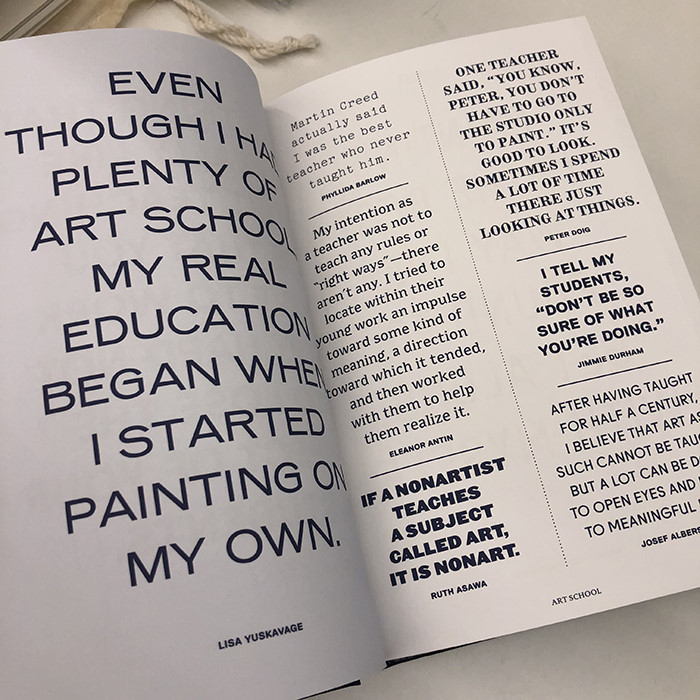 EVEN
THOUGH I HAD
PLENTY OF
ART SCHOOL,
MY REAL
EDUCATION
BEGAN WHEN
I STARTED
PAINTING ON
MY OWN.
LISA YUSKAVAGE
Martin Creed
actually said
I was the best
teacher who never
taught him.
PHYLLIDA BARLOW
My intention as
a teacher was not to
teach any rules or
"right ways"—there
aren't any. I tried to
locate within their
young work an impulse
toward some kind of
meaning, a direction
toward which it tended,
and then worked
with them to help
them realize it.
ELEANOR ANTIN
IF A NONARTIST
TEACHES
A SUBJECT
CALLED ART,
IT IS NONART.
RUTH ASAWA
ONE TEACHER
SAID, "YOU KNOW,
PETER, YOU DON'T
HAVE TO GO TO
THE STUDIO ONLY
TO PAINT." IT'S
GOOD TO LOOK.
SOMETIMES I SPEND
A LOT OF TIME
THERE JUST
LOOKING AT THINGS.
PETER DOIG
I TELL MY
STUDENTS,
"DON'T BE SO
SURE OF WHAT
YOU'RE DOING."
JIMMIE DURHAM
AFTER HAVING TAUGHT
FOR HALF A CENTURY,
I BELIEVE THAT ART AS
SUCH CANNOT BE TAUGHT,
BUT A LOT CAN BE
TO OPEN EYES AND
TO MEANINGFUL
JOSEF ALBERS
ART SCHOOL